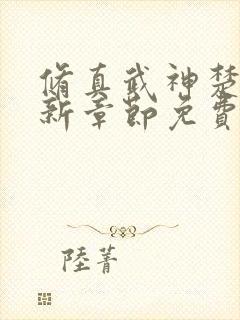 脩真武神楚
新章節免費
陸菁